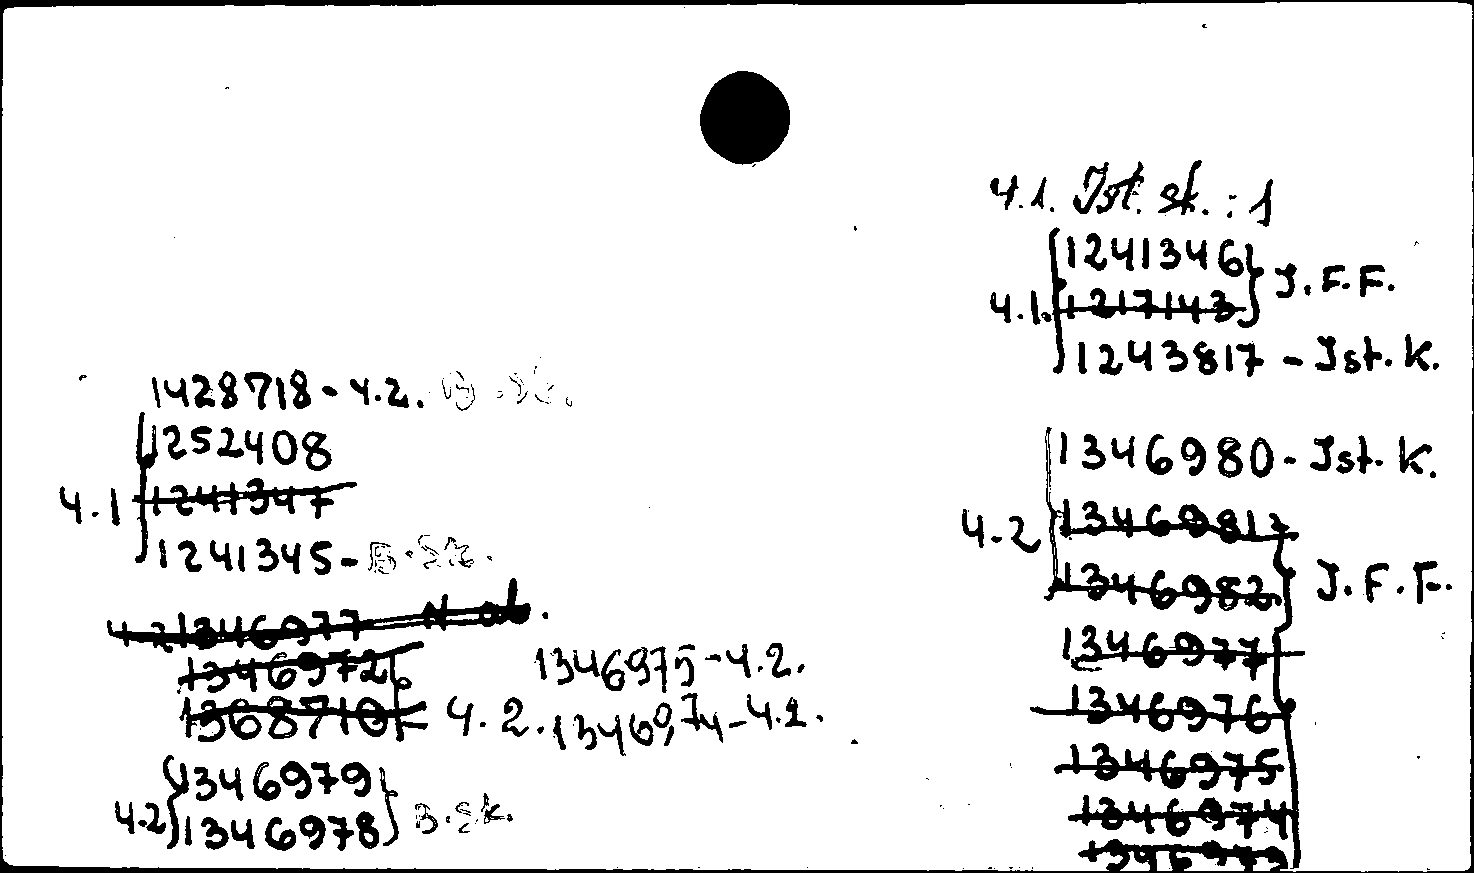 4.1. Ist. sk. : 1
1241346
4.1. 1217143 } J.F.F.
1243817 - Ist. K.
1346980 - Ist. K.
4.2 1346981
1346982 } J.F.F.
1346977
1346976
1346975
1346974
1346973
1428718 - 4.2. B.sk.
1252408
4.1 1241347
1241345 - B.sk.
4.2 1346977
1346972
1368710 4.2.
1346975 - 4.2.
1346974 - 4.2.
1346979
4.2 1346978 } B.sk.